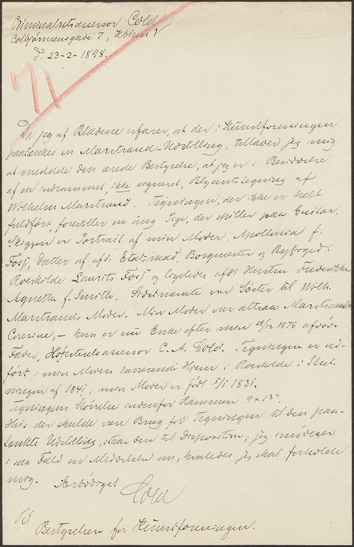 Kriminalretsassessor Cold
Colbjørnsensgade 7, Kbhvn V
d. 23-2-1898.
Da jeg af Bladene erfarer, at der i Kunstforeningen
paatænkes en Marstrand-Udstilling, tillader jeg mig
at meddele den ærede Bestyrelse, at jeg er i Besiddelse
af en indrammet, ikke signeret, Blyantstegning af
Wilhelm Marstrand. Tegningen, der ikke er helt
fuldført, forestiller en ung Pige, der spiller paa Guitar.
Pigen er Portrait af min Moder, f.
Datter af afd. Etatsraad, Borgmester og Byfoged i
Roskilde Laurits og ligeledes afdøde Hustru Frederikke
Agnetha f. Smith. Sidstnævnte var Søster til Wilh.
Marstrands Moder. Min Moder var altsaa Marstrands
Cousine, - hun er nu Enke efter min 1876 afdøde
Fader, C. A. Cold. Tegningen er ud-
ført i min Moders Hjem i Roskilde i Slut-
ningen af 1847, min Moder er født 1831.
Tegningens Størrelse indenfor Rammen
Hvis der skulde være Brug for Tegningen til den paa-
tænkte Udstilling, staar den til Disposition, jeg
i saa Fald en Meddelelse om, hvorledes jeg skal forholde
mig.
Ærbødigst
Cold
Til
Bestyrelsen for Kunstforeningen.